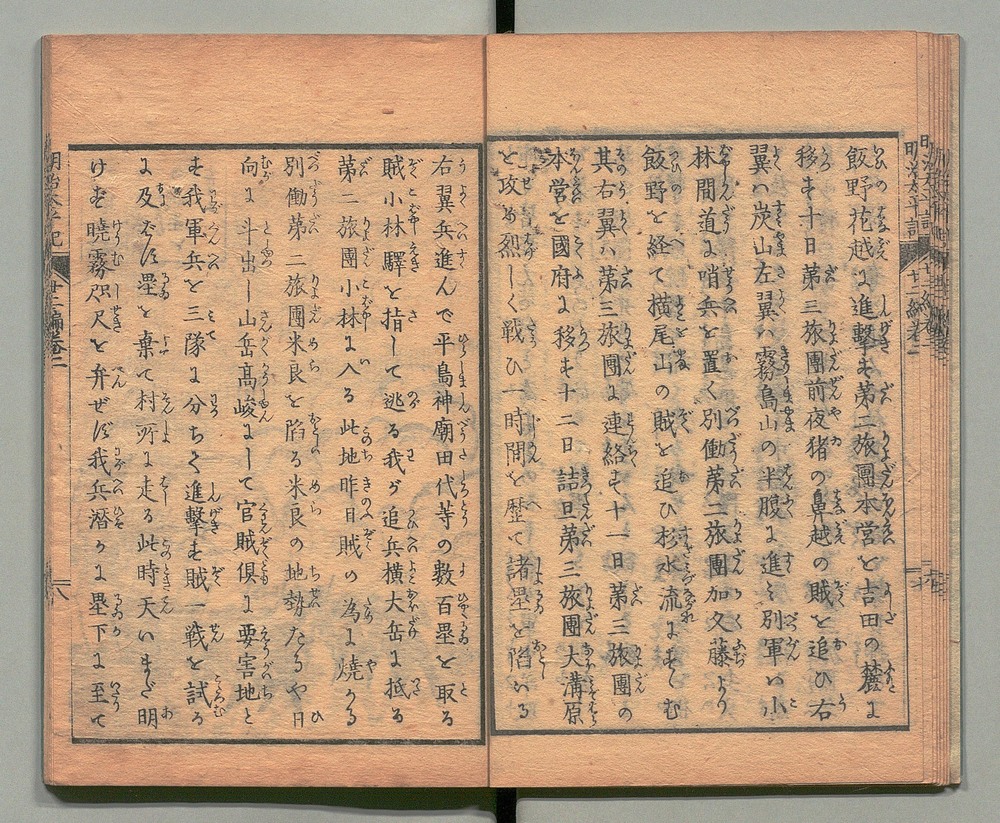 飯野花越に進撃す第二旅團本営を吉田の麓に
移す十日第三旅團前夜猪の鼻越の賊を追ひ右
翼ハ炭山左翼ハ霧島山の半腹に進み別軍ハ小
林間道に哨兵を置く別働第二旅團加久藤より
飯野を経て横尾山の賊を追ひ杉水流にすゝむ
其右翼ハ第三旅團に連絡す十一日第三旅團の
本営を國府に移す十二日詰旦第三旅團大溝原
を攻め烈しく戦ひ一時間を歴て諸塁を陷いる
右翼兵進んで平島神廟田代等の数百塁を取る
賊小林驛を指して逃る我が追兵横大岳に抵る
第二旅團小林に入る此地昨日賊の為に燒かる
別働第二旅團米良を陷る米良の地勢たるや日
向に斗出し山岳高峻にして官賊倶に要害地と
す我軍兵を三隊に分ちて進撃す賊一戦を試る
に及ばず塁を棄て村所に走る此時天いまだ明
けず曉霧咫尺を弁ぜず我兵潜かに塁下に至て
明治太平記
廿二編巻二
八